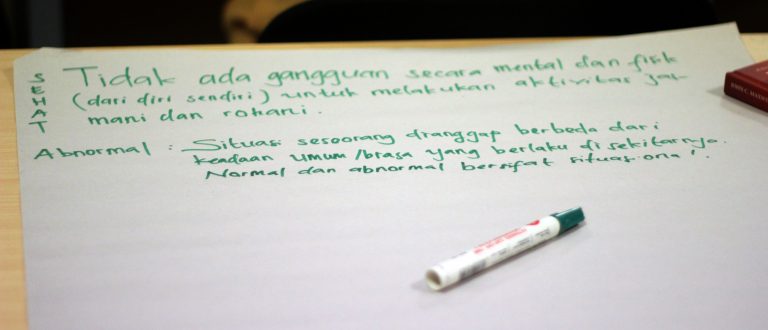 SEHAT
Tidak ada gangguan secara mental dan fisik
(dari diri sendiri) untuk melakukan aktivitas jas-
mani dan rohani.
Abnormal : Situasi seseorang dianggap berbeda dari
keadaan umum/biasa yang berlaku di sekitarnya.
Normal dan abnormal bersifat situasional.